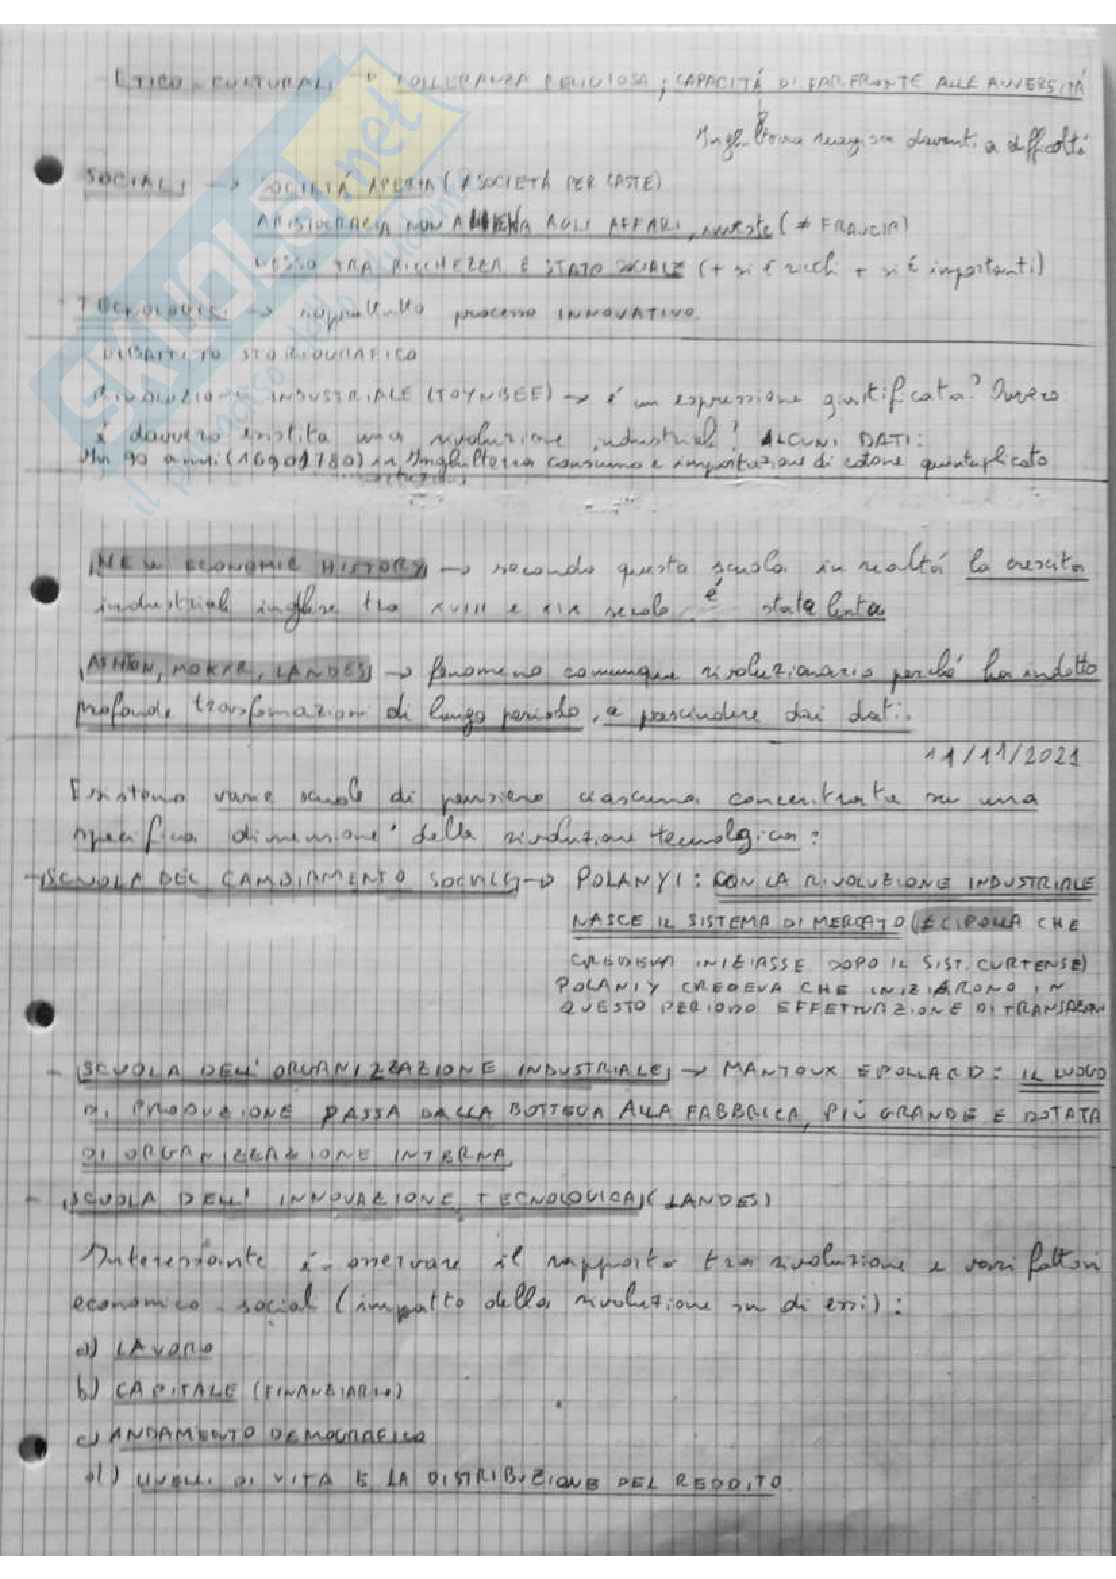 ETICO-CULTURALI → TOLLERANZA RELIGIOSA, CAPACITÁ DI FAR FRONTE ALLE AVVERSITÁ
Inghilterra reagisce davanti a difficoltá
SOCIALI → SOCIETÁ APERTA (≠ SOCIETÁ PER CASTE)
ARISTOCRAZIA NON ALIENA AGLI AFFARI, investe (≠ FRANCIA)
NESSO TRA RICCHEZZA E STATO SOCIALE (+ si é ricchi + si é importanti)
TECNOLOGICI → soprattutto processo INNOVATIVO
DIBATTITO STORIOGRAFICO
RIVOLUZIONE INDUSTRIALE (TOYNBEE) → é un espressione giustificata? Ovvero
é davvero esistita una rivoluzione industriale? ALCUNI DATI:
In 90 anni (1690 1780) in Inghilterra consumo e importazione di cotone quintuplicato
NEW ECONOMIC HISTORY → secondo questa scuola in realtá la crescita
industriale inglese tra XVIII e XIX secolo é stata lenta
ASHTON, MOKYR, LANDES → fenomeno comunque rivoluzionario perché ha indotto
profonde trasformazioni di lungo periodo, a pescindere dai dati.
11/11/2021
Esistono varie scuole di pensiero ciascuna concentrata su una
specifica dimensione della rivoluzione tecnologica:
- SCUOLA DEL CAMBIAMENTO SOCIALE → POLANYI: CON LA RIVOLUZIONE INDUSTRIALE
NASCE IL SISTEMA DI MERCATO (≠ CIPOLLA CHE
CREDEVA INIZIASSE DOPO IL SIST. CURTENSE)
POLANIY CREDEVA CHE INIZIARONO IN
QUESTO PERIODO EFFETTUAZIONE DI TRANSAZIONI
- SCUOLA DELL'ORGANIZZAZIONE INDUSTRIALE → MANTOUX E POLLARD: IL LUOGO
DI PRODUZIONE PASSA DALLA BOTTEGA ALLA FABBRICA, PIÚ GRANDE E DOTATA
DI ORGANIZZAZIONE INTERNA
- SCUOLA DELL' INNOVAZIONE TECNOLOGICA (LANDES)
Interessante é osservare il rapporto tra rivoluzione e vari fattori
economico-sociali (impatto della rivoluzione su di essi):
a) LAVORO
b) CAPITALE (FINANZIARIO)
c) ANDAMENTO DEMOGRAFICO
d) LIVELLI DI VITA E LA DISTRIBUZIONE DEL REDDITO
SKUOLA.net